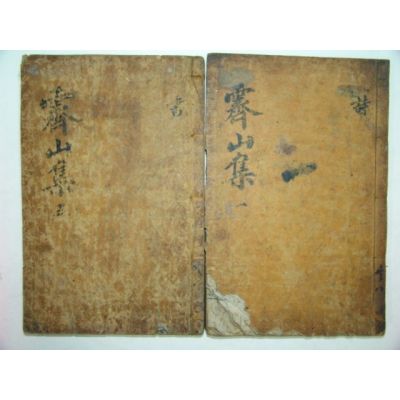 詩
霽山集 一
書
霽山集 五